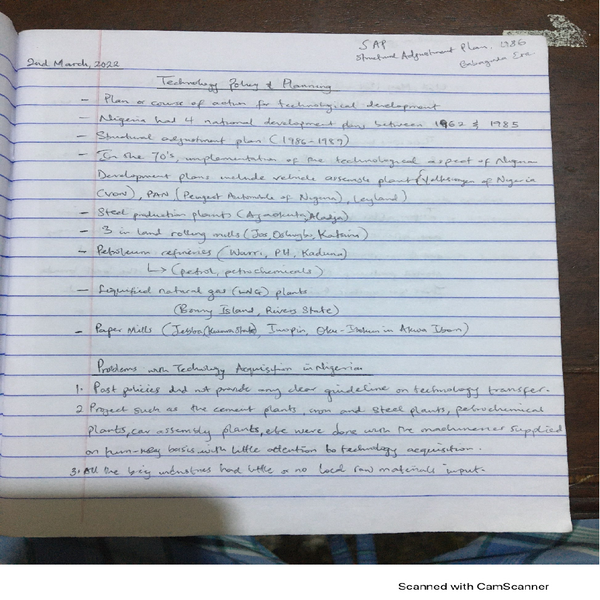 SAP
Structural Adjustment Plan. 1986
Babangida Era.
2nd March, 2022
Technology Policy & Planning
- Plan or course of action for technological development
- Nigeria had 4 national development plans between 1962 & 1985
- Structural adjustment plan (1986-1989)
- In the 70's, implementation of the technological aspect of Nigeria
Development plans include vehicle assemble plant (Volkswagen of Nigeria
(VON), PAN (Peugeot Automobile of Nigeria), Leyland)
- Steel production plants (Ajaokuta, Aladja)
- 3 in land rolling mills (Jos, Oshogbo, Katsina)
- Petroleum refineries (Warri, PH, Kaduna)
↳ (petrol, petrochemicals)
- Liquified natural gas (LNG) plants
(Bonny Island, Rivers State)
- Paper Mills (Jebba/Kwara State, Iwopin, Oku-Iboku in Akwa Ibom)
Problems with Technology Acquisition in Nigeria
1. Past policies did not provide any clear guideline on technology transfer.
2 Project such as the cement plants, iron and steel plants, petrochemical
plants, car assembly plants, etc were done with the machineries supplied
on turn-key basis with little attention to technology acquisition.
3. All the big industries had little or no local raw materials input.
Scanned with CamScanner